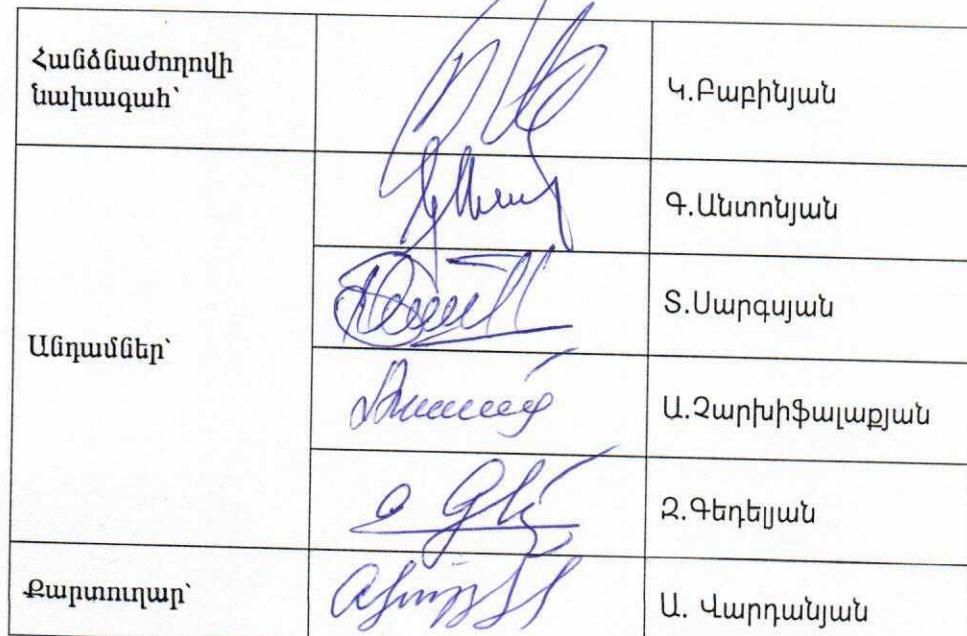 Հանձնաժողովի
նախագահ՝
Կ.Բաբինյան
Անդամներ՝
Գ.Անտոնյան
Տ.Սարգսյան
Ա.Չարխիֆալաքյան
Զ.Գեդելյան
Քարտուղար՝
Ա. Վարդանյան